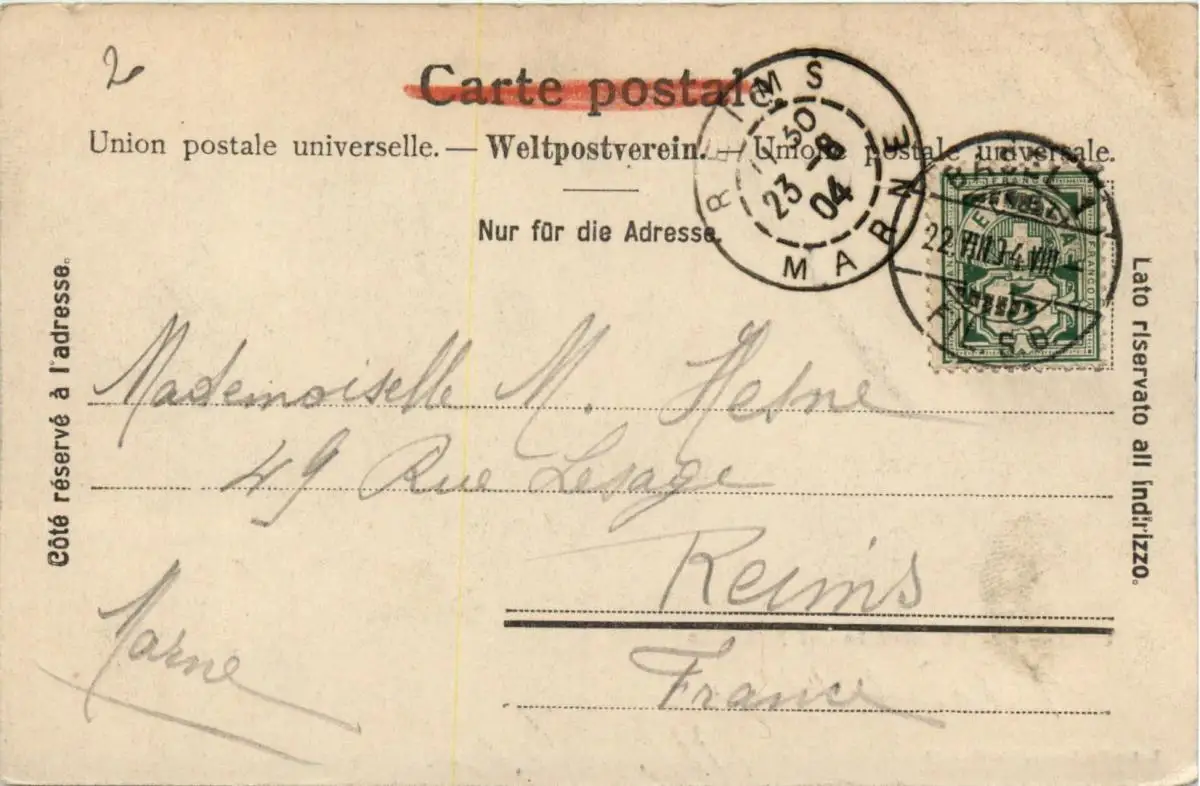 2
Carte postale.
Union postale universelle. — Weltpostverein. — Unione postale universale.
Nur für die Adresse.
Côté réservé à l'adresse.
Lato riservato all indirizzo.
REIMS
30
23 -8
04
MARNE
BASEL 1
22.VIII.04.VIII
FIL. S.B.
FRANCO
FRANCO
5
Mademoiselle M. Hesne
49 Rue Lesage
Reims
Marne
France